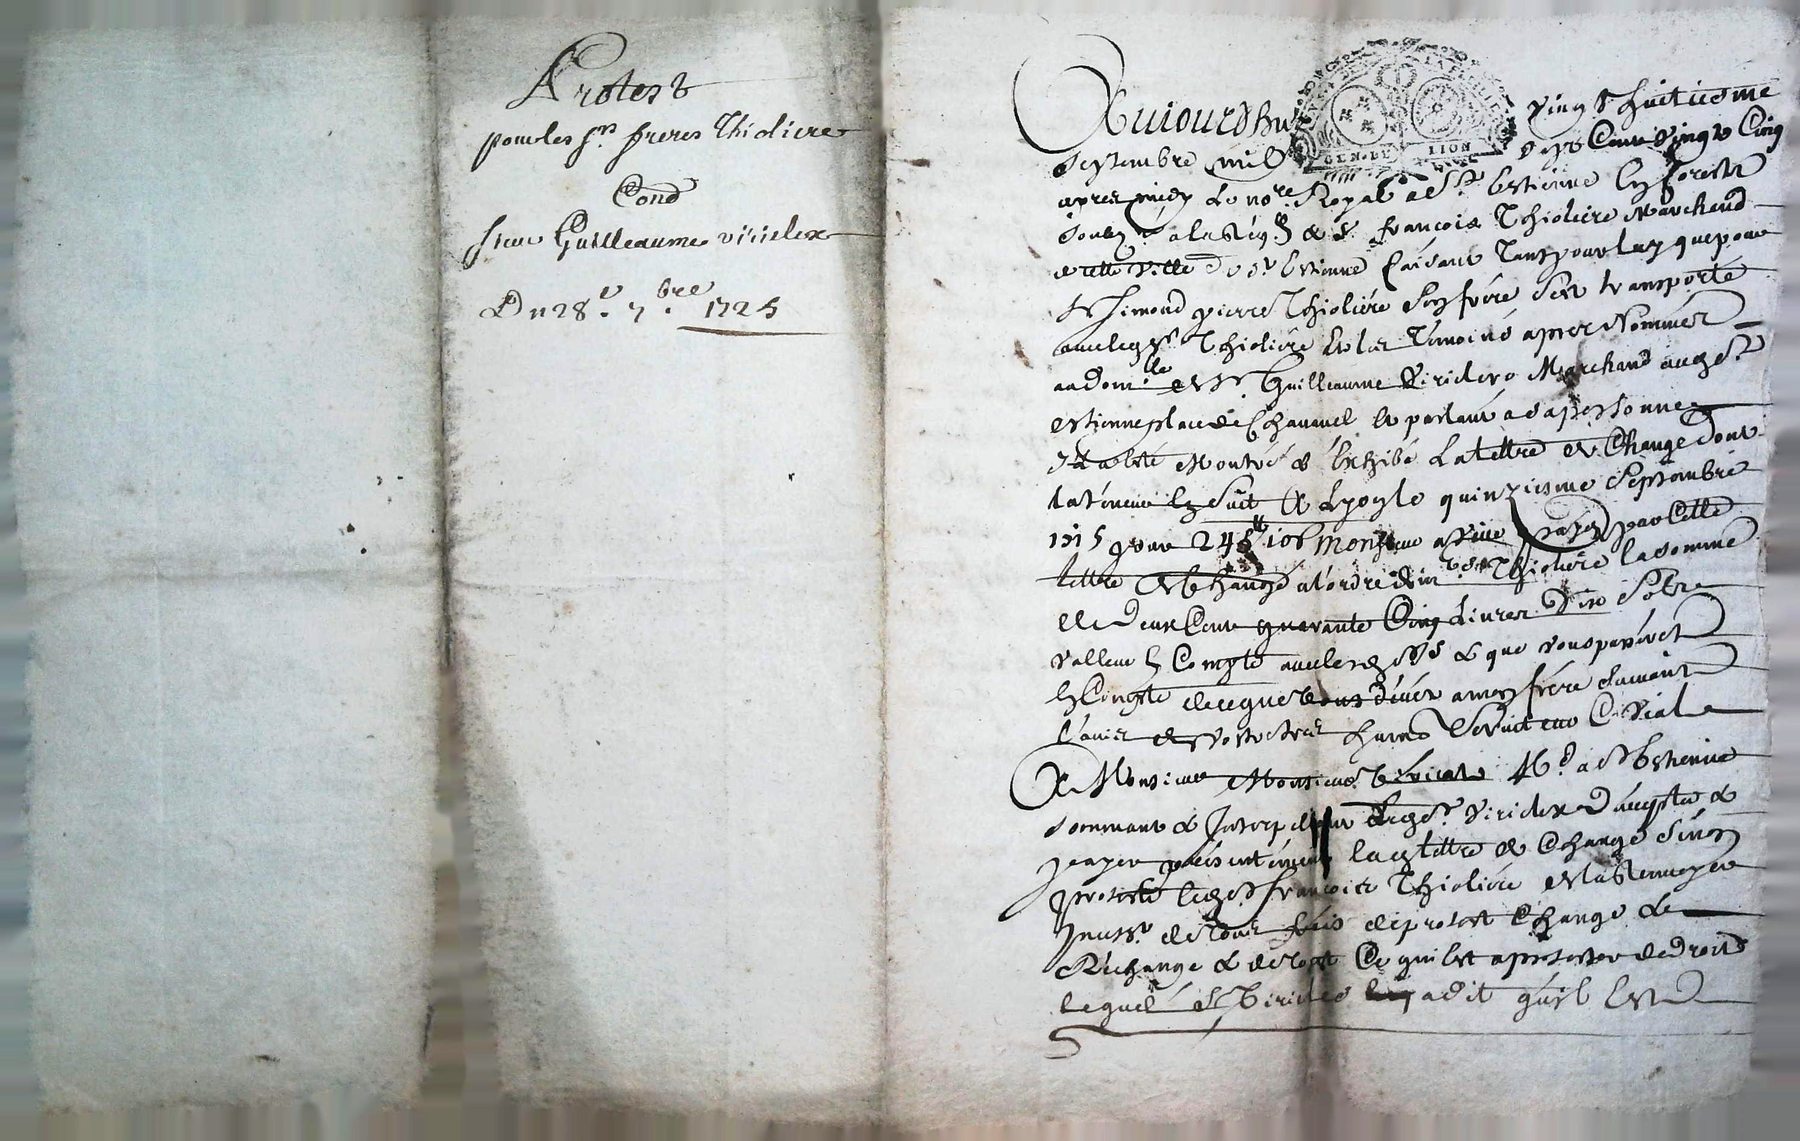 Protest
pour les srs freres Thioliere
Cond
sieur Guilleaume viridex
Du 28e 7bre 1725
Aujourdhuy vingt huitiesme
GEN. DE LION
Septembre mil sept Cent vingt Cinq
apres midy Le nore Royal a St Estienne En forest
soubzne a la Reqn de sr françois Thioliere Marchand
de cette ville de st Estienne faisant Tant pour luy que pour
sr simond pierre Thioliere son frere sest transporté
avec led sr Thioliere & les Temoins apres Nommés
au domlle de sr Guilleaume Viridex Marchand aud st
estienne place de Chavanel & parlant a sa personne
Il a esté Montré & Exhibé La Lettre de Change dont
la teneur En suit A Lyon le quinziesme Septembre
1725 pour 245lt 10s Monsieur a veue payes par Cette
Lettre de Change a l'ordre de mrs Thioliere la somme
de Deux Cent quarante Cinq Livres Dix Sols
valleur En Compte avec led srs & que vous passerés
En Compte de ce que vous devés a mon frere suivant
l'avis de vostre tres humb Serviteur C Vial
A Monsieur Monsieur Md a St Estienne
Sommant & Interpellant Led sr Viridex D'accepter &
payer presentement lad lettre de Change sinon
proteste led sr françois Thioliere de la Renvoyer
de tous frais de protest Change &
Rechange & de tout Ce quil Est a protester de Droit
lequel sr Viridex a dit qu'il Est